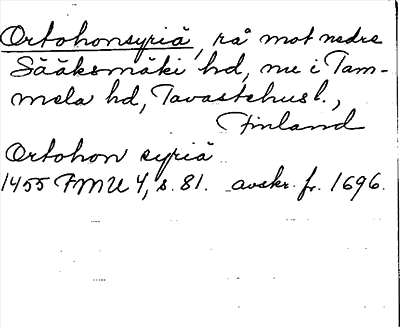 Ortohonsyriä, rå mot nedre
Sääksmäki hd, nu i Tam-
mela hd, Tavastehusl.,
Finland
Ortohon syriä
1455 FMU 4, s. 81. avskr. fr. 1696.